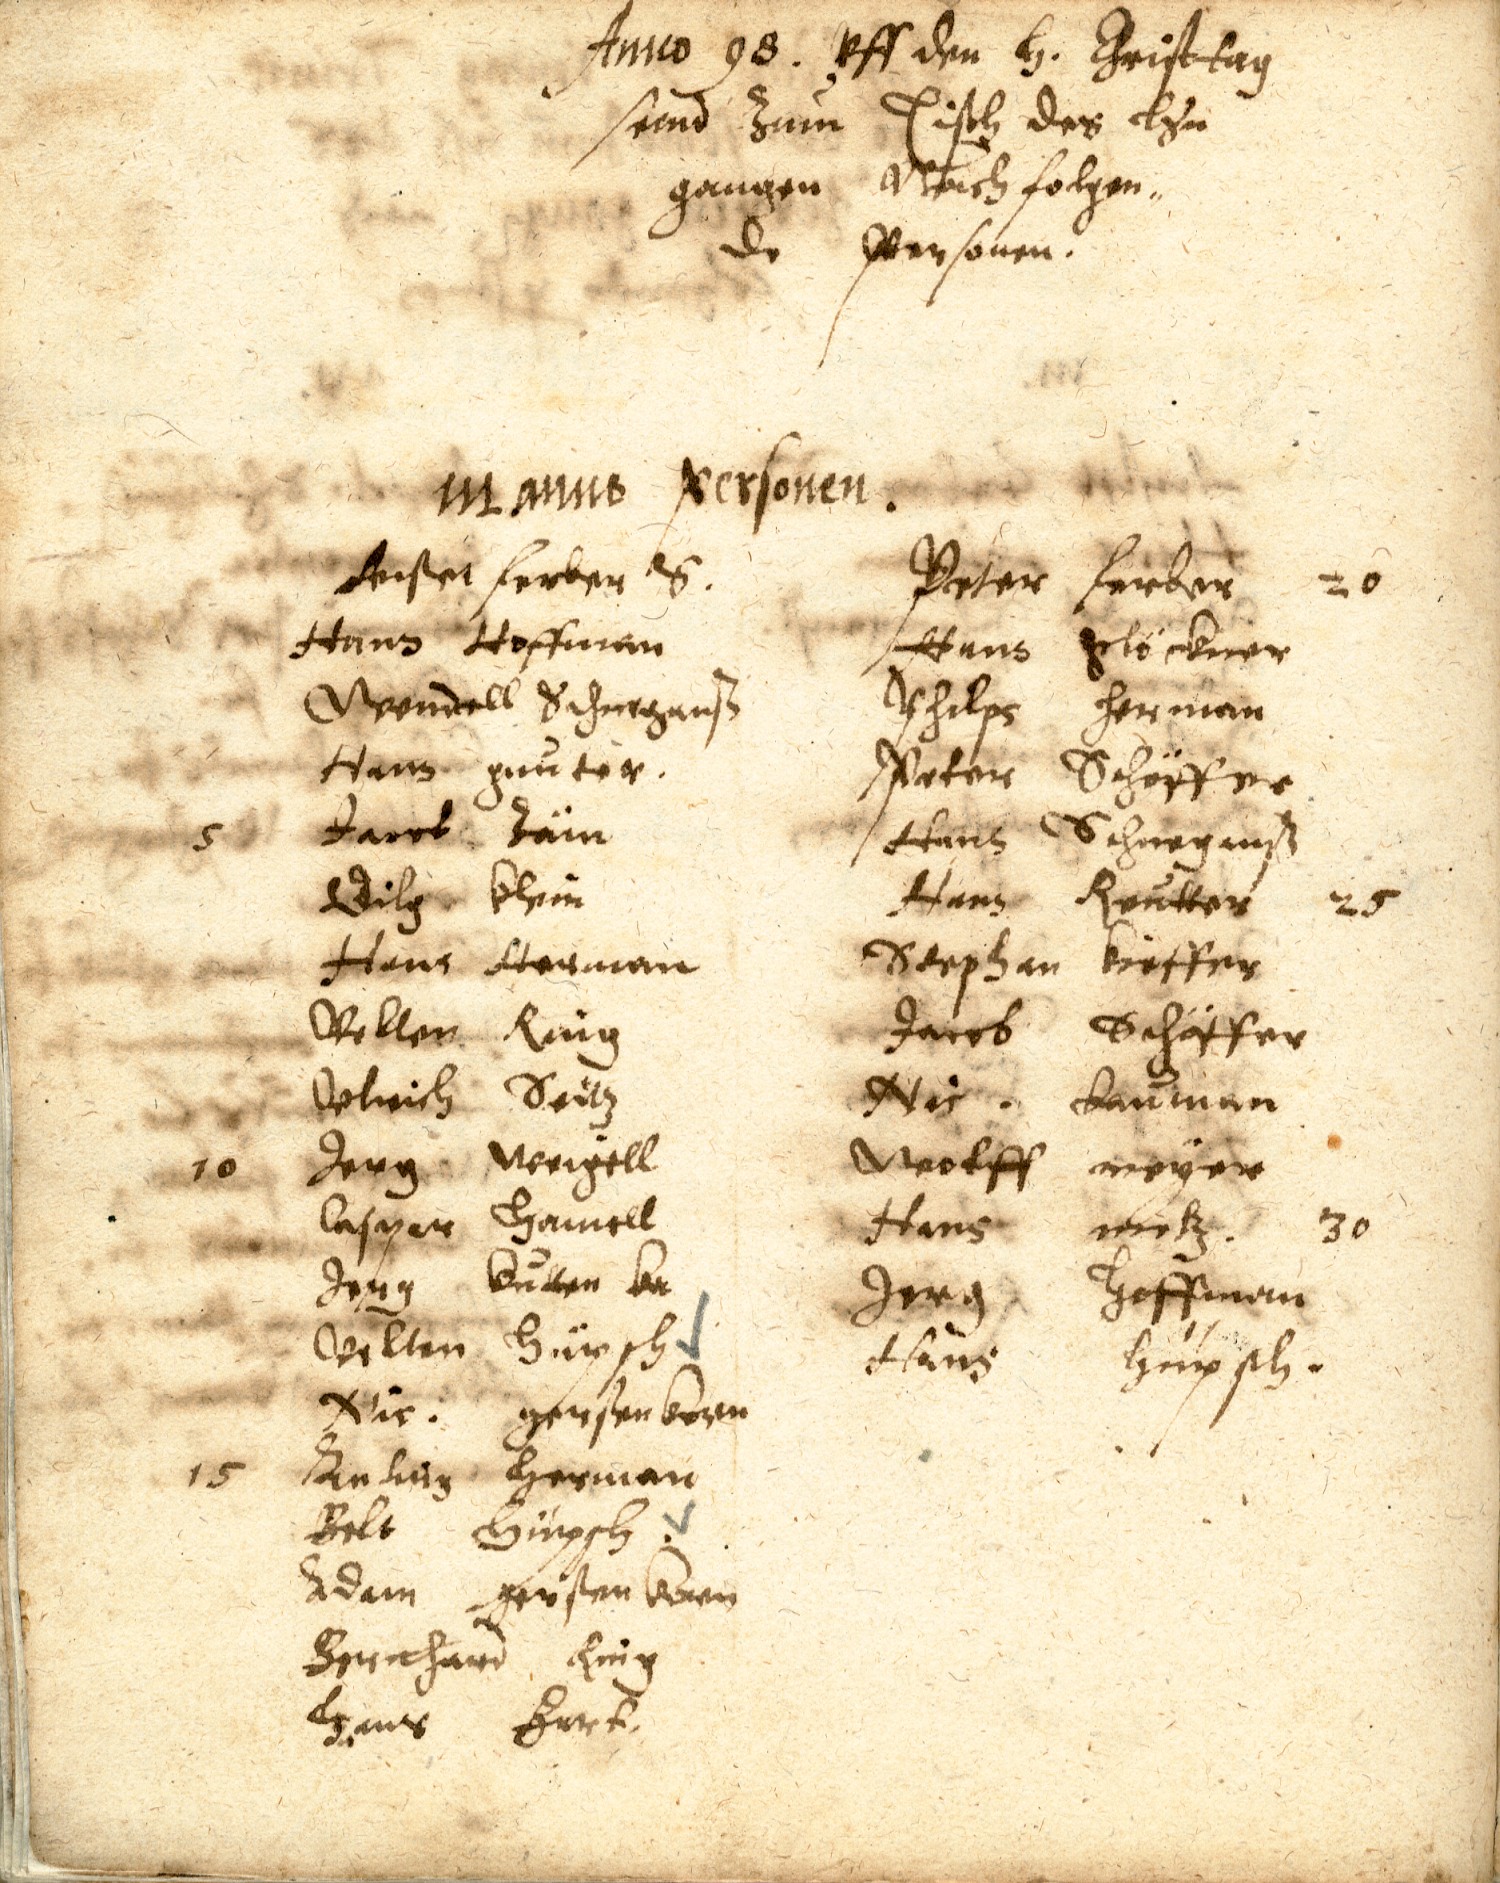 Anno 98. Vff den h. Christtag
seind zum Tisch des Hern
gangen Nachfolgen„
de Personen.
Manns Personen.
ferber S.
Hans Hoffman
Wendell Schneganß
Hans gnuter.
5 Jacob
Gilg Klein
Hans Herman
Velten Ring
Vlrich Seitz
10 Jerg Weigell
Caspar Hamell
Jerg
Velten Hüpsch
Nic. gerstenkorn
15 Herman
Belt Hüpsch.
Adam gerstenkorn
Bernhard Ring
Hans
Peter ferber 20
Hans glöckner
Philps Herman
Peter Schöffer
Hans Schneganß
Hans Reutter 25
Stephan Kieffer
Jacob Schöffer
Nic. bauman
Wolff meÿer
Hans metz. 30
Jerg Hoffman
Hans Hüpsch.